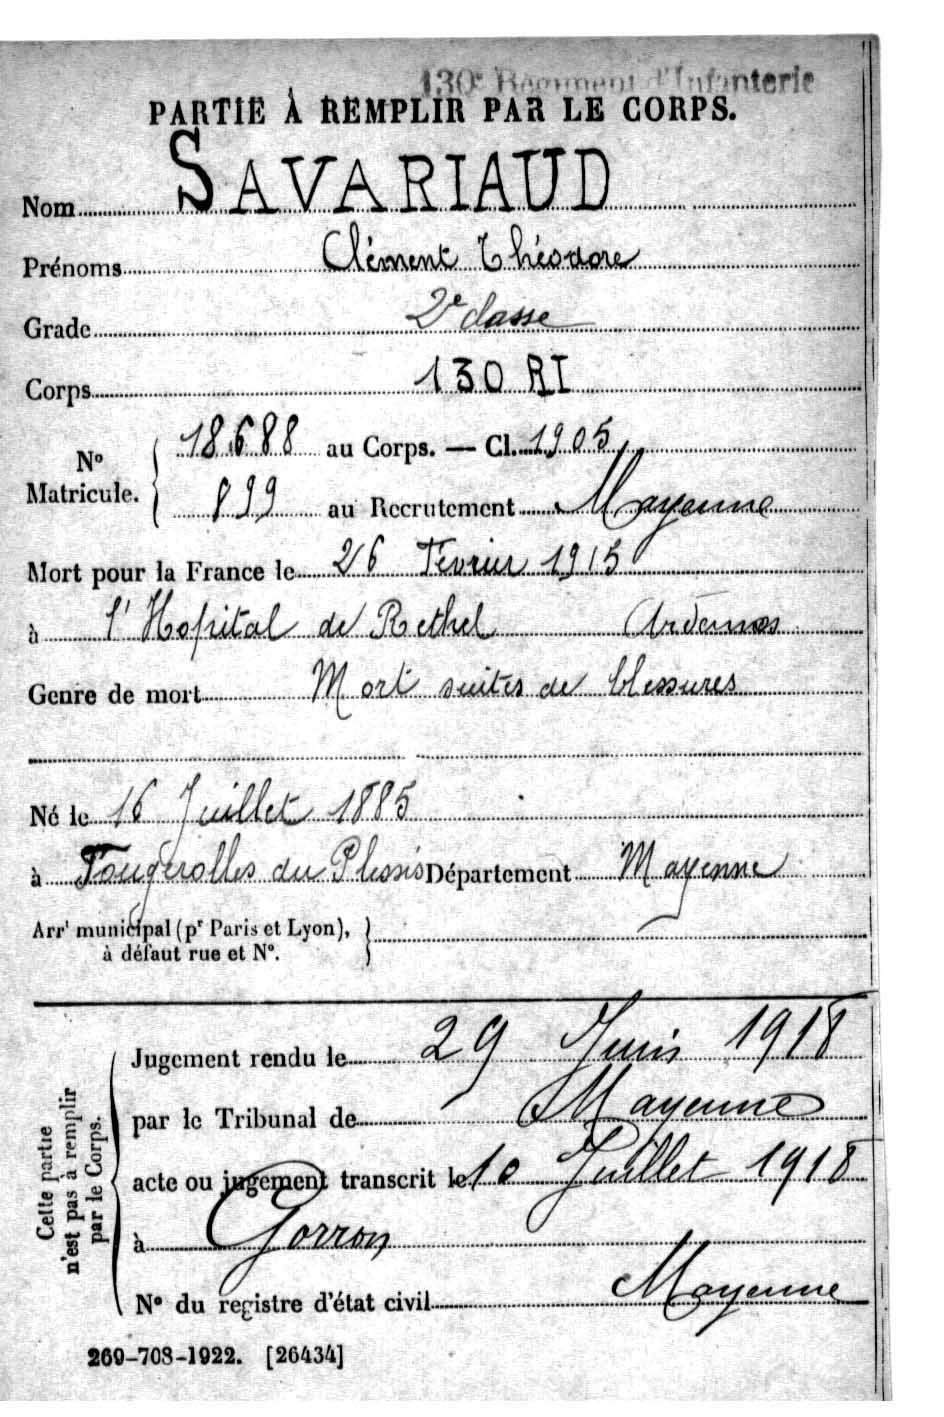 130e Régiment d'Infanterie
PARTIE À REMPLIR PAR LE CORPS.
Nom SAVARIAUD
Prénoms Clément Théodore
Grade 2e classe
Corps 130 RI
No Matricule. { 18688 au Corps. — Cl. 1905
899 au Recrutement Mayenne
Mort pour la France le 26 Février 1915
à l'Hopital de Rethel Ardennes
Genre de mort Mort suites de blessures
Né le 16 Juillet 1885
à Fougerolles du Plessis Département Mayenne
Arrt municipal (pr Paris et Lyon), }
à défaut rue et No.
Cette partie
n'est pas à remplir
par le Corps.
Jugement rendu le 29 Juin 1918
par le Tribunal de Mayenne
acte ou jugement transcrit le 10 Juillet 1918
à Gorron
No du registre d'état civil Mayenne
269-708-1922. [26434]